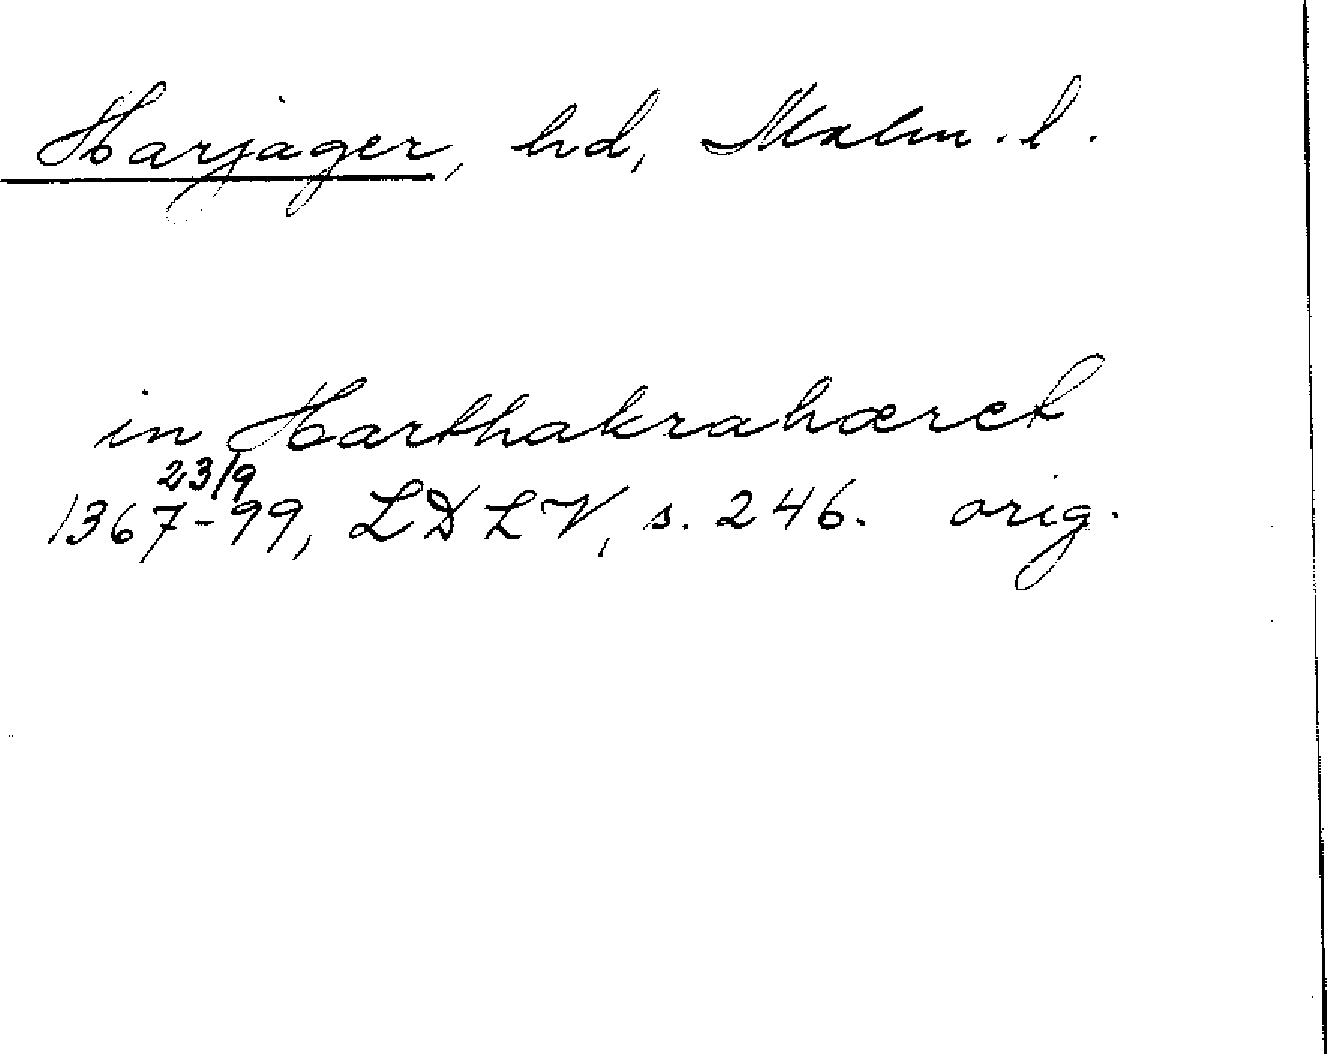 Harjager, hd, Malm. l.
in Harthakrahæret
23/9
1367-99, LDLV, s. 246. orig.